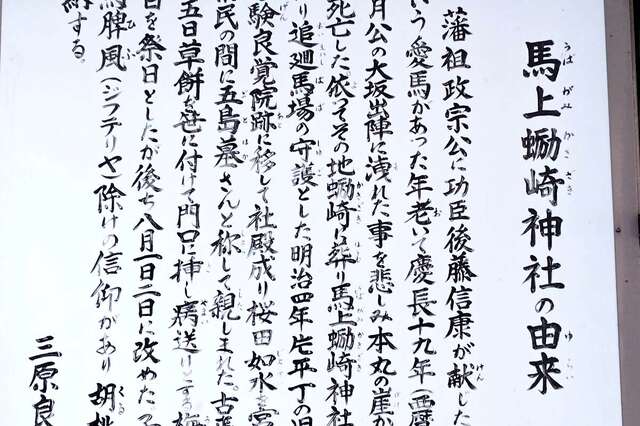 馬上蛎崎神社の由来
藩祖政宗公に功臣後藤信康が献した
いう愛馬があった年老いて慶長十九年(西暦
月公の大坂出陣に洩れた事を悲しみ本丸の崖か
死亡した依ってその地蛎崎に葬り馬上蛎崎神社
り追廻馬場の守護とした明治四年片平丁の旧
験良覚院跡に移して社殿成り桜田如水を宮
民の間に五島墓さんと称して親しまれた古
五日草餅を笹に付けて門口に挿し病送りとする
日を祭日としたが後ち八月一日二日に改めた
脾風(ジフテリヤ)除けの信仰があり胡桃
する
三原良